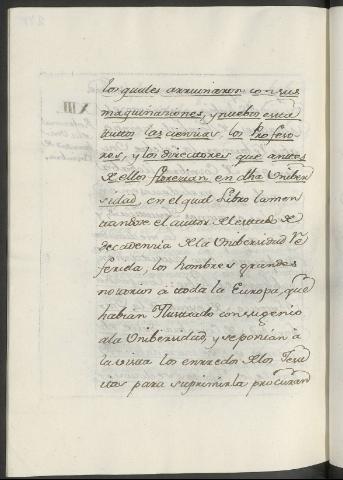 los quales arruinaron con sus
maquinaciones, y nuebos esta
tutos las ciencias, los Profeso
res, y los directores que antes
de ellos florecian en dha Univer
sidad, en el qual Libro lamen
tandose el autor del estado de
decadencia de la Unibersidad Re
ferida, los hombres grandes
notorios à toda la Europa, que
habian Ilustrado con su genio
ala Unibersidad, y se ponian à
la vista los enrredos de los Jesu
itas para suprimirla procuran